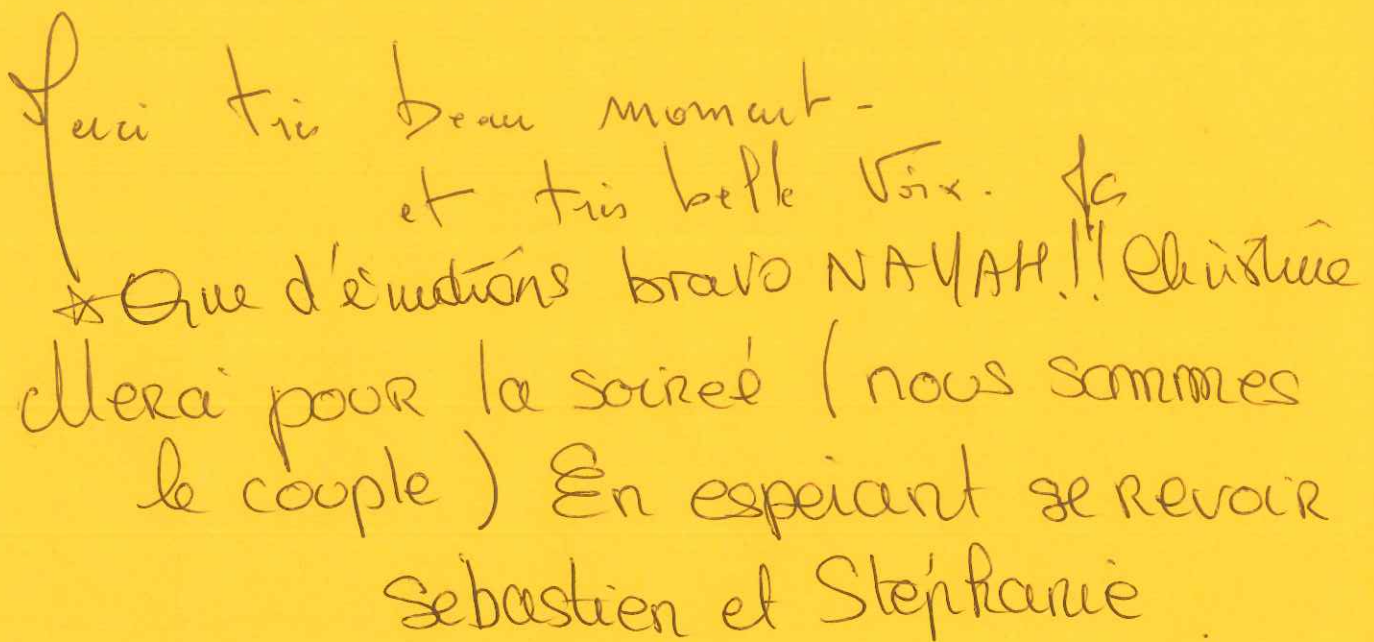 Merci très beau moment -
et très belle Voix. Jc
* Que d'émotions bravo NAYAH!! Christine
Merci pour la soireé (nous sommes
le couple) En espérant se revoir
Sebastien et Stéphanie